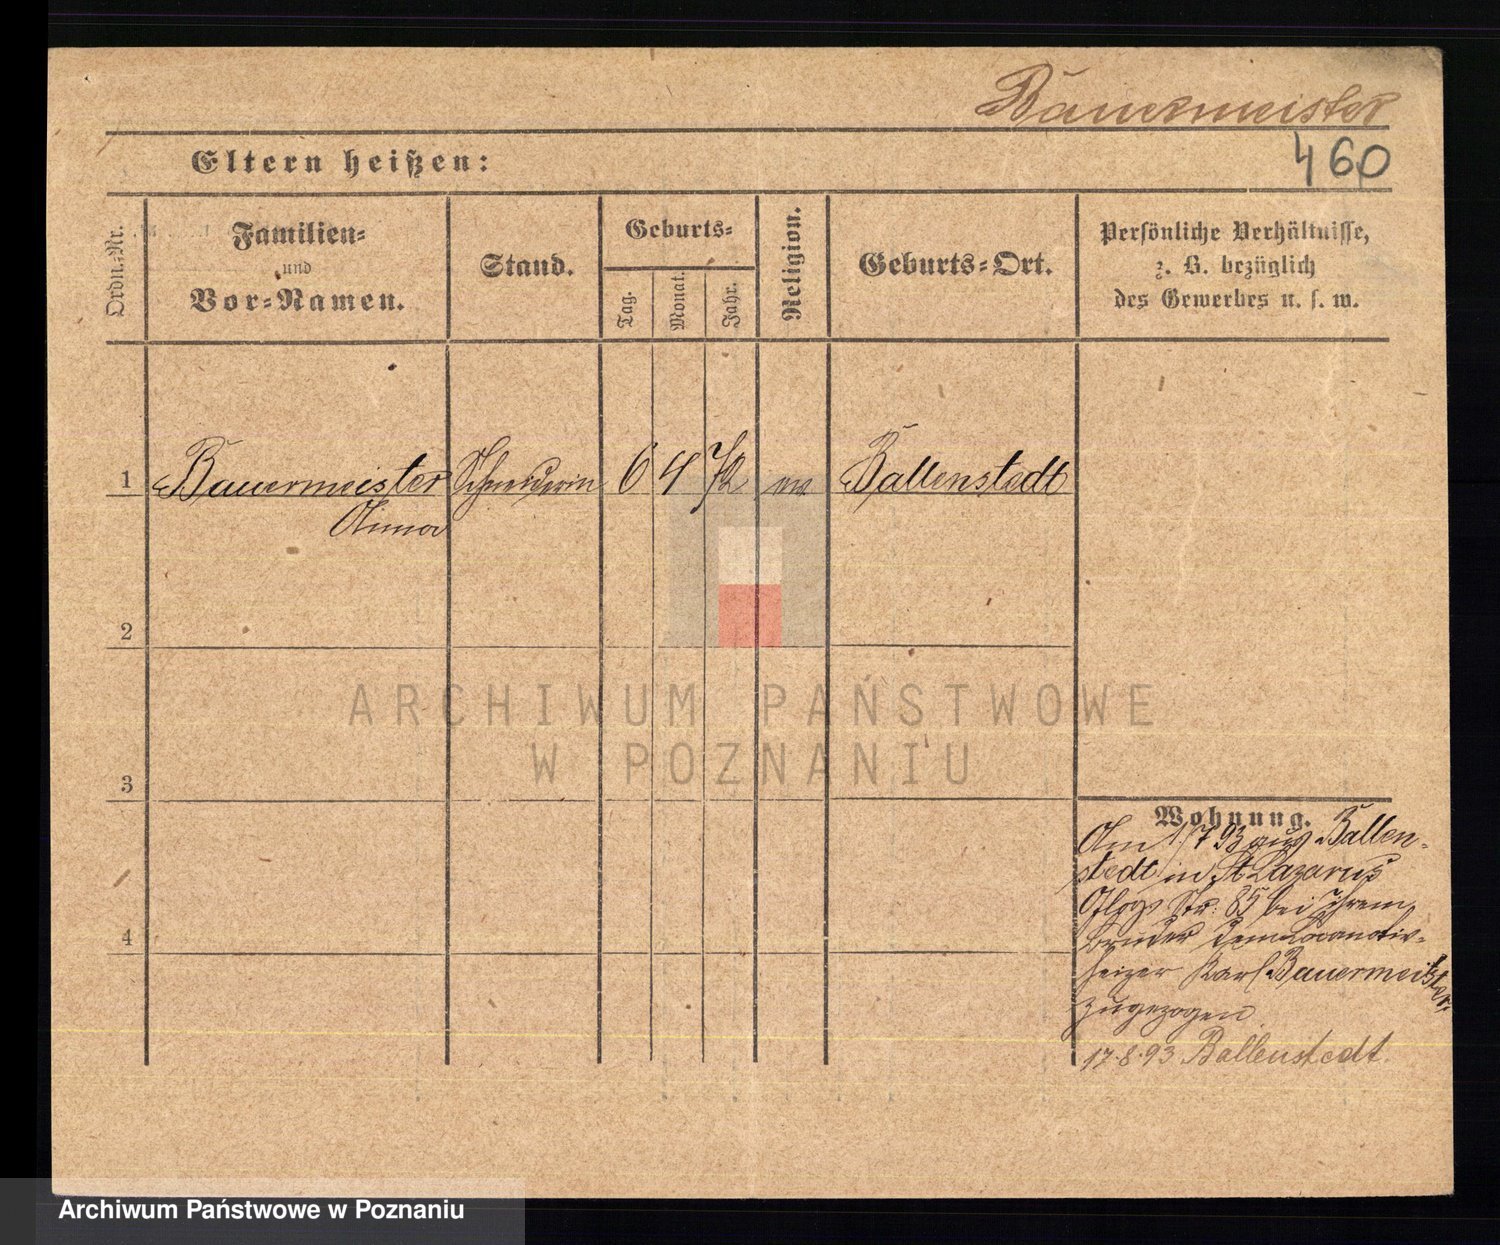 Bauermeister
460
Eltern heißen:
Ordn.-Nr.
Familien-
und
Vor-Namen.
Stand.
Geburts-
Tag.
Monat.
Jahr.
Religion.
Geburts-Ort.
Persönliche Verhältnisse,
z. B. bezüglich
des Gewerbes u. s. w.
1 Bauermeister Schneiderin 6 4 72 ev. Ballenstedt
Anna
2
3
4
Wohnung.
Am 1/7 93 aus Ballen-
stedt in St Lazarus
Glogs Str: 85 bei Ihrem
bruder dem Locomotiv-
heizer Karl Bauermeister
zugezogen
17.8.93 Ballenstedt.
ARCHIWUM PAŃSTWOWE
W POZNANIU
Archiwum Państwowe w Poznaniu